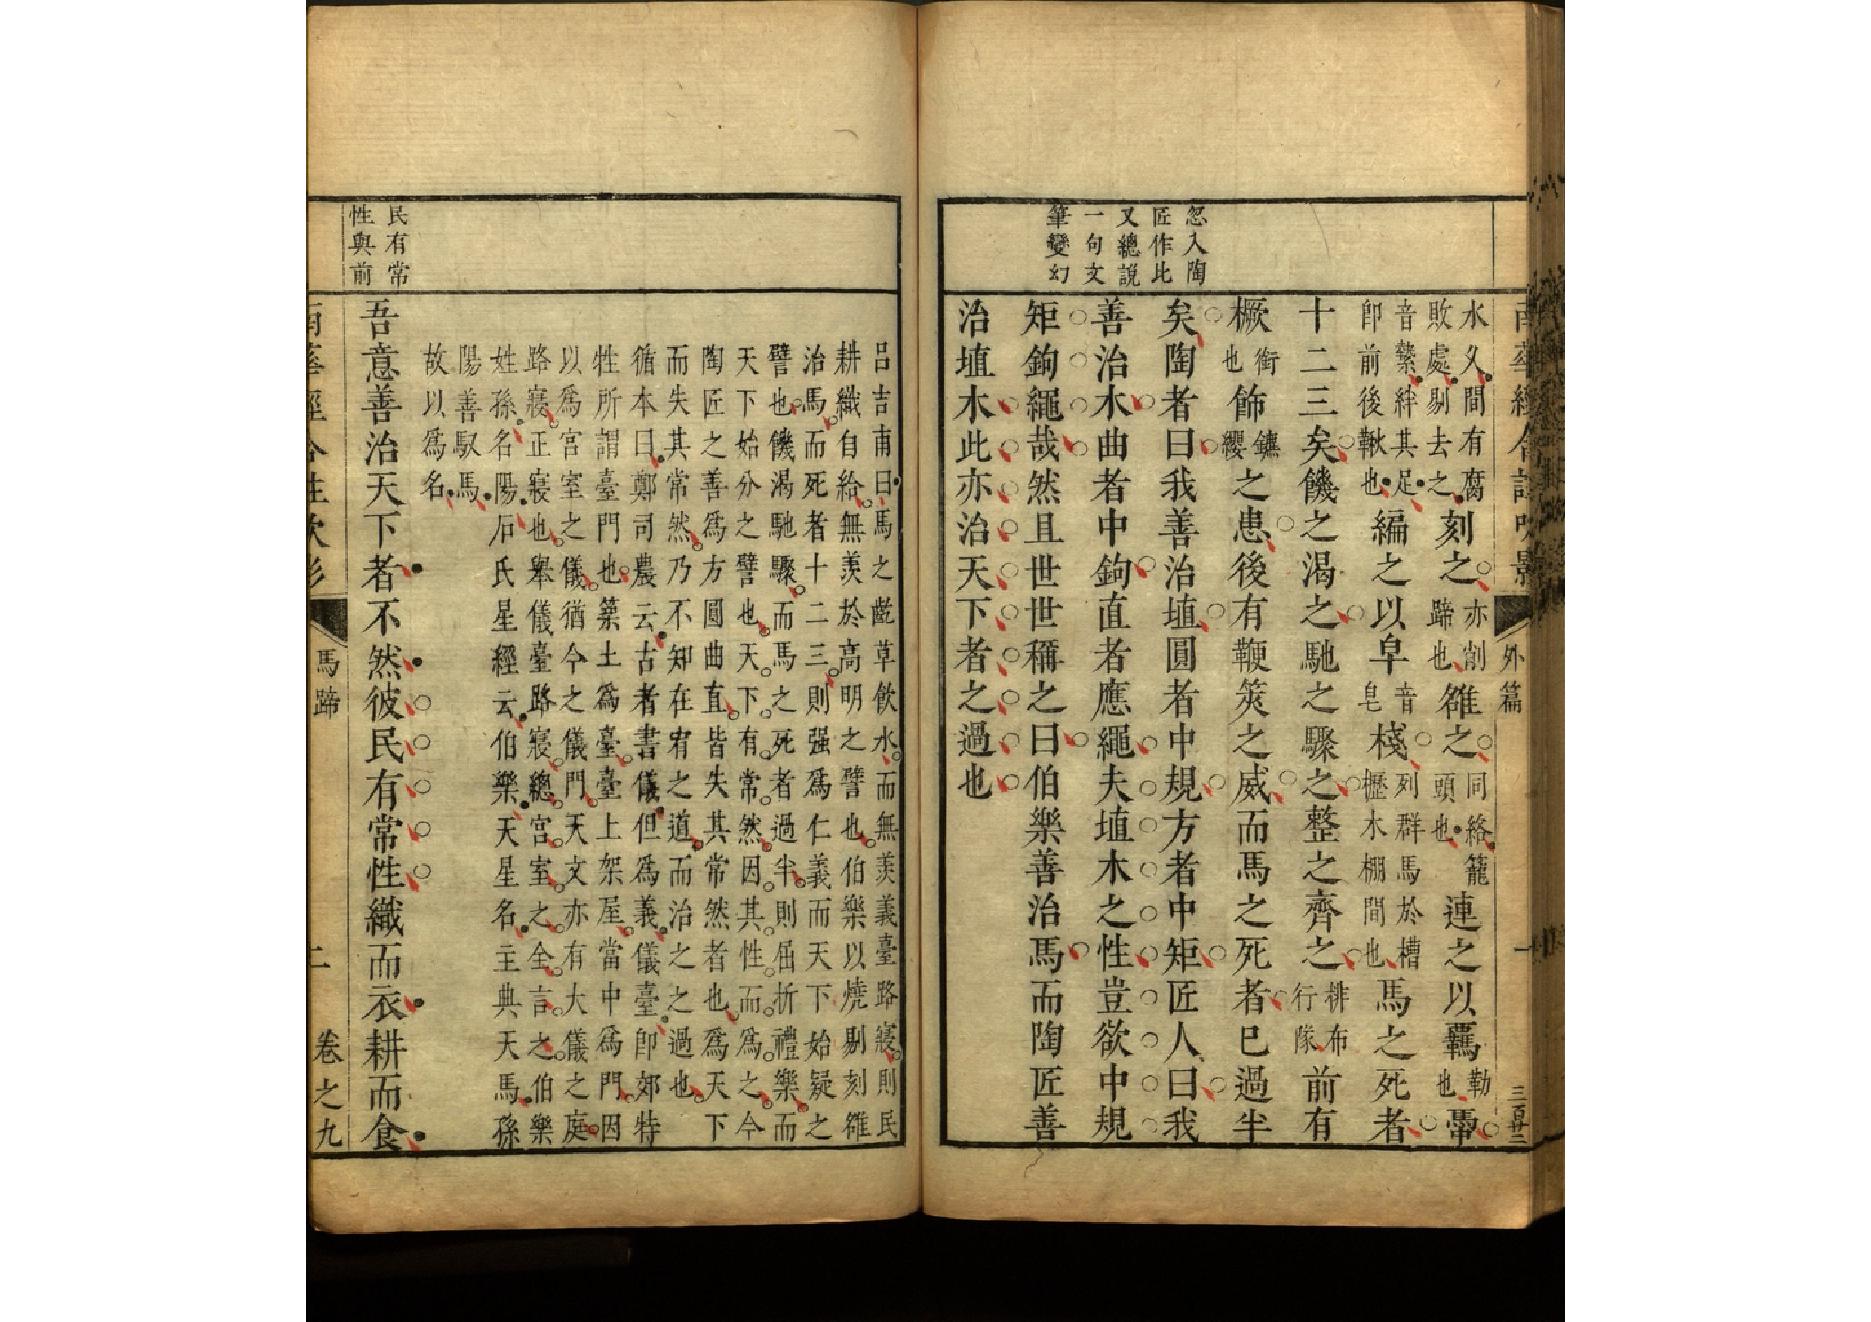 外篇
一
三百廿三
忽入陶
匠作比
又總說
一句文
筆變幻
水久間有腐
敗處剔去之刻之亦削
蹄也雒之同絡籠
頭也連之以羈勒
也馽
音縶絆其足
卽前後鞦也編之以皁音
皂棧列群馬於槽
櫪木棚間也馬之死者
十二三矣饑之渴之馳之驟之整之齊之排布
行隊前有
橛銜
也飾鑣
纓之患後有鞭筴之威而馬之死者已過半
矣陶者曰我善治埴圓者中規方者中矩匠人曰我
善治木曲者中鉤直者應繩夫埴木之性豈欲中規
矩鉤繩哉然且世世稱之曰伯樂善治馬而陶匠善
治埴木此亦治天下者之過也
呂吉甫曰馬之齕草飲水而無羨義臺路寢則民
耕織自給無羨於高明之譬也伯樂以燒剔刻雒
治馬而死者十二三則强爲仁義而天下始疑之
譬也饑渴馳驟而馬之死者過半則屈折禮樂而
天下始分之譬也天下有常然因其性而爲之今
陶匠之善爲方圓曲直皆失其常然者也爲天下
而失其常然乃不知在宥之道而治之之過也
循本曰鄭司農云古者書儀但爲義儀臺卽郊特
牲所謂臺門也築土爲臺臺上架屋當中爲門因
以爲宮室之儀猶今之儀門天文亦有大儀之庭
路寢正寢也舉儀臺路寢總宮室之全言之伯樂
姓孫名陽石氏星經云伯樂天星名主典天馬孫
陽善馭馬
故以爲名
民有常
性與前
吾意善治天下者不然彼民有常性織而衣耕而食
馬蹄
二
卷之九